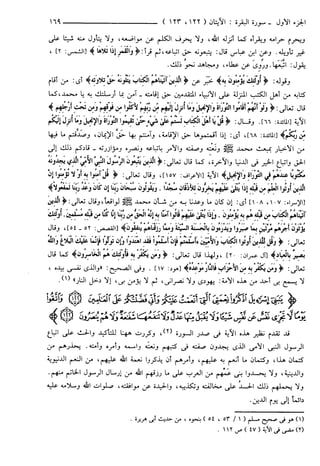 الجزء الأول - سورة البقرة : الآيتان (١٢٢ ، ١٢٣)
١٦٦
ويحرم حرامه ويقرأه كما أنزله الله ، ولا يحرف الكلم عن مواضعه، ولا يتأول منه شيئا على
غير تأويله. وعن ابن عباس قال: يتبعونه حق اتباعه، ثم قرأ: ﴿وَالْقَمَرِ إِذَا تَلَاهَا﴾ [الشمس: ٢] ،
يقول: اتَّبَعها. ورُوِيَ عن عطاء،
وقوله: ﴿أُولَٰئِكَ يُؤْمِنُونَ بِهِ﴾ خبر عن ﴿الَّذِينَ آتَيْنَاهُمُ الْكِتَابَ يَتْلُونَهُ حَقَّ تِلَاوَتِهِ﴾ أي: من أقام
كتابه من أهل الكتب المنزلة على الأنبياء المتقدمين حق إقامته - آمن بما أرسلتك به يا محمد، كما
قال تعالى: ﴿وَلَوْ أَنَّهُمْ أَقَامُوا التَّوْرَاةَ وَالْإِنْجِيلَ وَمَا أُنْزِلَ إِلَيْهِمْ مِنْ رَبِّهِمْ لَأَكَلُوا مِنْ فَوْقِهِمْ وَمِنْ تَحْتِ أَرْجُلِهِمْ﴾
الآية [المائدة: ٦٦]. وقال: ﴿قُلْ يَا أَهْلَ الْكِتَابِ لَسْتُمْ عَلَىٰ شَيْءٍ حَتَّىٰ تُقِيمُوا التَّوْرَاةَ وَالْإِنْجِيلَ وَمَا أُنْزِلَ إِلَيْكُمْ
مِنْ رَبِّكُمْ﴾ [المائدة: ٦٨]، أي: إذا أقمتموها حق الإقامة، وآمنتم بها حق الإيمان، وصدَّقتم ما فيها
من الأخبار بمبعث محمد ﷺ ونَعْته وصفته والأمر باتباعه ونصره ومؤازرته - قادكم ذلك إلى
الحق واتباع الخير في الدنيا والآخرة، كما قال تعالى: ﴿الَّذِينَ يَتَّبِعُونَ الرَّسُولَ النَّبِيَّ الْأُمِّيَّ الَّذِي يَجِدُونَهُ
مَكْتُوبًا عِنْدَهُمْ فِي التَّوْرَاةِ وَالْإِنْجِيلِ﴾ الآية [الأعراف: ١٥٧]، وقال تعالى: ﴿قُلْ آمِنُوا بِهِ أَوْ لَا تُؤْمِنُوا إِنَّ
الَّذِينَ أُوتُوا الْعِلْمَ مِنْ قَبْلِهِ إِذَا يُتْلَىٰ عَلَيْهِمْ يَخِرُّونَ لِلْأَذْقَانِ سُجَّدًا . وَيَقُولُونَ سُبْحَانَ رَبِّنَا إِنْ كَانَ وَعْدُ رَبِّنَا لَمَفْعُولًا﴾
[الإسراء: ١٠٧ ، ١٠٨] أي: إن كان ما وعدنا به من شأن محمد ﷺ لواقعاً، وقال تعالى: ﴿الَّذِينَ
آتَيْنَاهُمُ الْكِتَابَ مِنْ قَبْلِهِ هُمْ بِهِ يُؤْمِنُونَ . وَإِذَا يُتْلَىٰ عَلَيْهِمْ قَالُوا آمَنَّا بِهِ إِنَّهُ الْحَقُّ مِنْ رَبِّنَا إِنَّا كُنَّا مِنْ قَبْلِهِ مُسْلِمِينَ. أُولَٰئِكَ
يُؤْتَوْنَ أَجْرَهُمْ مَرَّتَيْنِ بِمَا صَبَرُوا وَيَدْرَءُونَ بِالْحَسَنَةِ السَّيِّئَةَ وَمِمَّا رَزَقْنَاهُمْ يُنْفِقُونَ﴾ [القصص: ٥٢ - ٥٤]، وقال
تعالى: ﴿وَقُلْ لِلَّذِينَ أُوتُوا الْكِتَابَ وَالْأُمِّيِّينَ أَأَسْلَمْتُمْ فَإِنْ أَسْلَمُوا فَقَدِ اهْتَدَوْا وَإِنْ تَوَلَّوْا فَإِنَّمَا عَلَيْكَ الْبَلَاغُ وَاللَّهُ
بَصِيرٌ بِالْعِبَادِ﴾ [آل عمران: ٢٠] ، ولهذا قال تعالى: ﴿وَمَنْ يَكْفُرْ بِهِ فَأُولَٰئِكَ هُمُ الْخَاسِرُونَ﴾ كما قال
تعالى: ﴿وَمَنْ يَكْفُرْ بِهِ مِنَ الْأَحْزَابِ فَالنَّارُ مَوْعِدُهُ﴾ [هود: ١٧] . وفي الصحيح: «والذي نفسي بيده ،
لا يسمع بي أحد من هذه الأمة: يهودي ولا نصراني، ثم لا يؤمن بي، إلا دخل النار» (١).
قد تقدم نظير هذه الآية في صدر السورة (٢)، وكررت ههنا للتأكيد والحث على اتباع
الرسول النبي الأمي الذي يجدون صفته في كتبهم ونعته واسمه وأمره وأمته. يحذرهم من
كتمان هذا، وكتمان ما أنعم به عليهم، وأمرهم أن يذكروا نعمة الله عليهم، من النعم الدنيوية
والدينية، ولا يحسدوا بني عمهم من العرب على ما رزقهم الله من إرسال الرسول الخاتم منهم.
ولا يحملهم ذلك الحسدُ على مخالفته وتكذيبه، والحيدة عن موافقته، صلوات الله وسلامه عليه
دائماً إلى يوم الدين.
(١) هو في صحيح مسلم (١ / ٥٣ ، ٥٤) بنحوه ، من حديث أبي هريرة .
(٢) مضى في الآية (٤٧) ص ١١٢ .